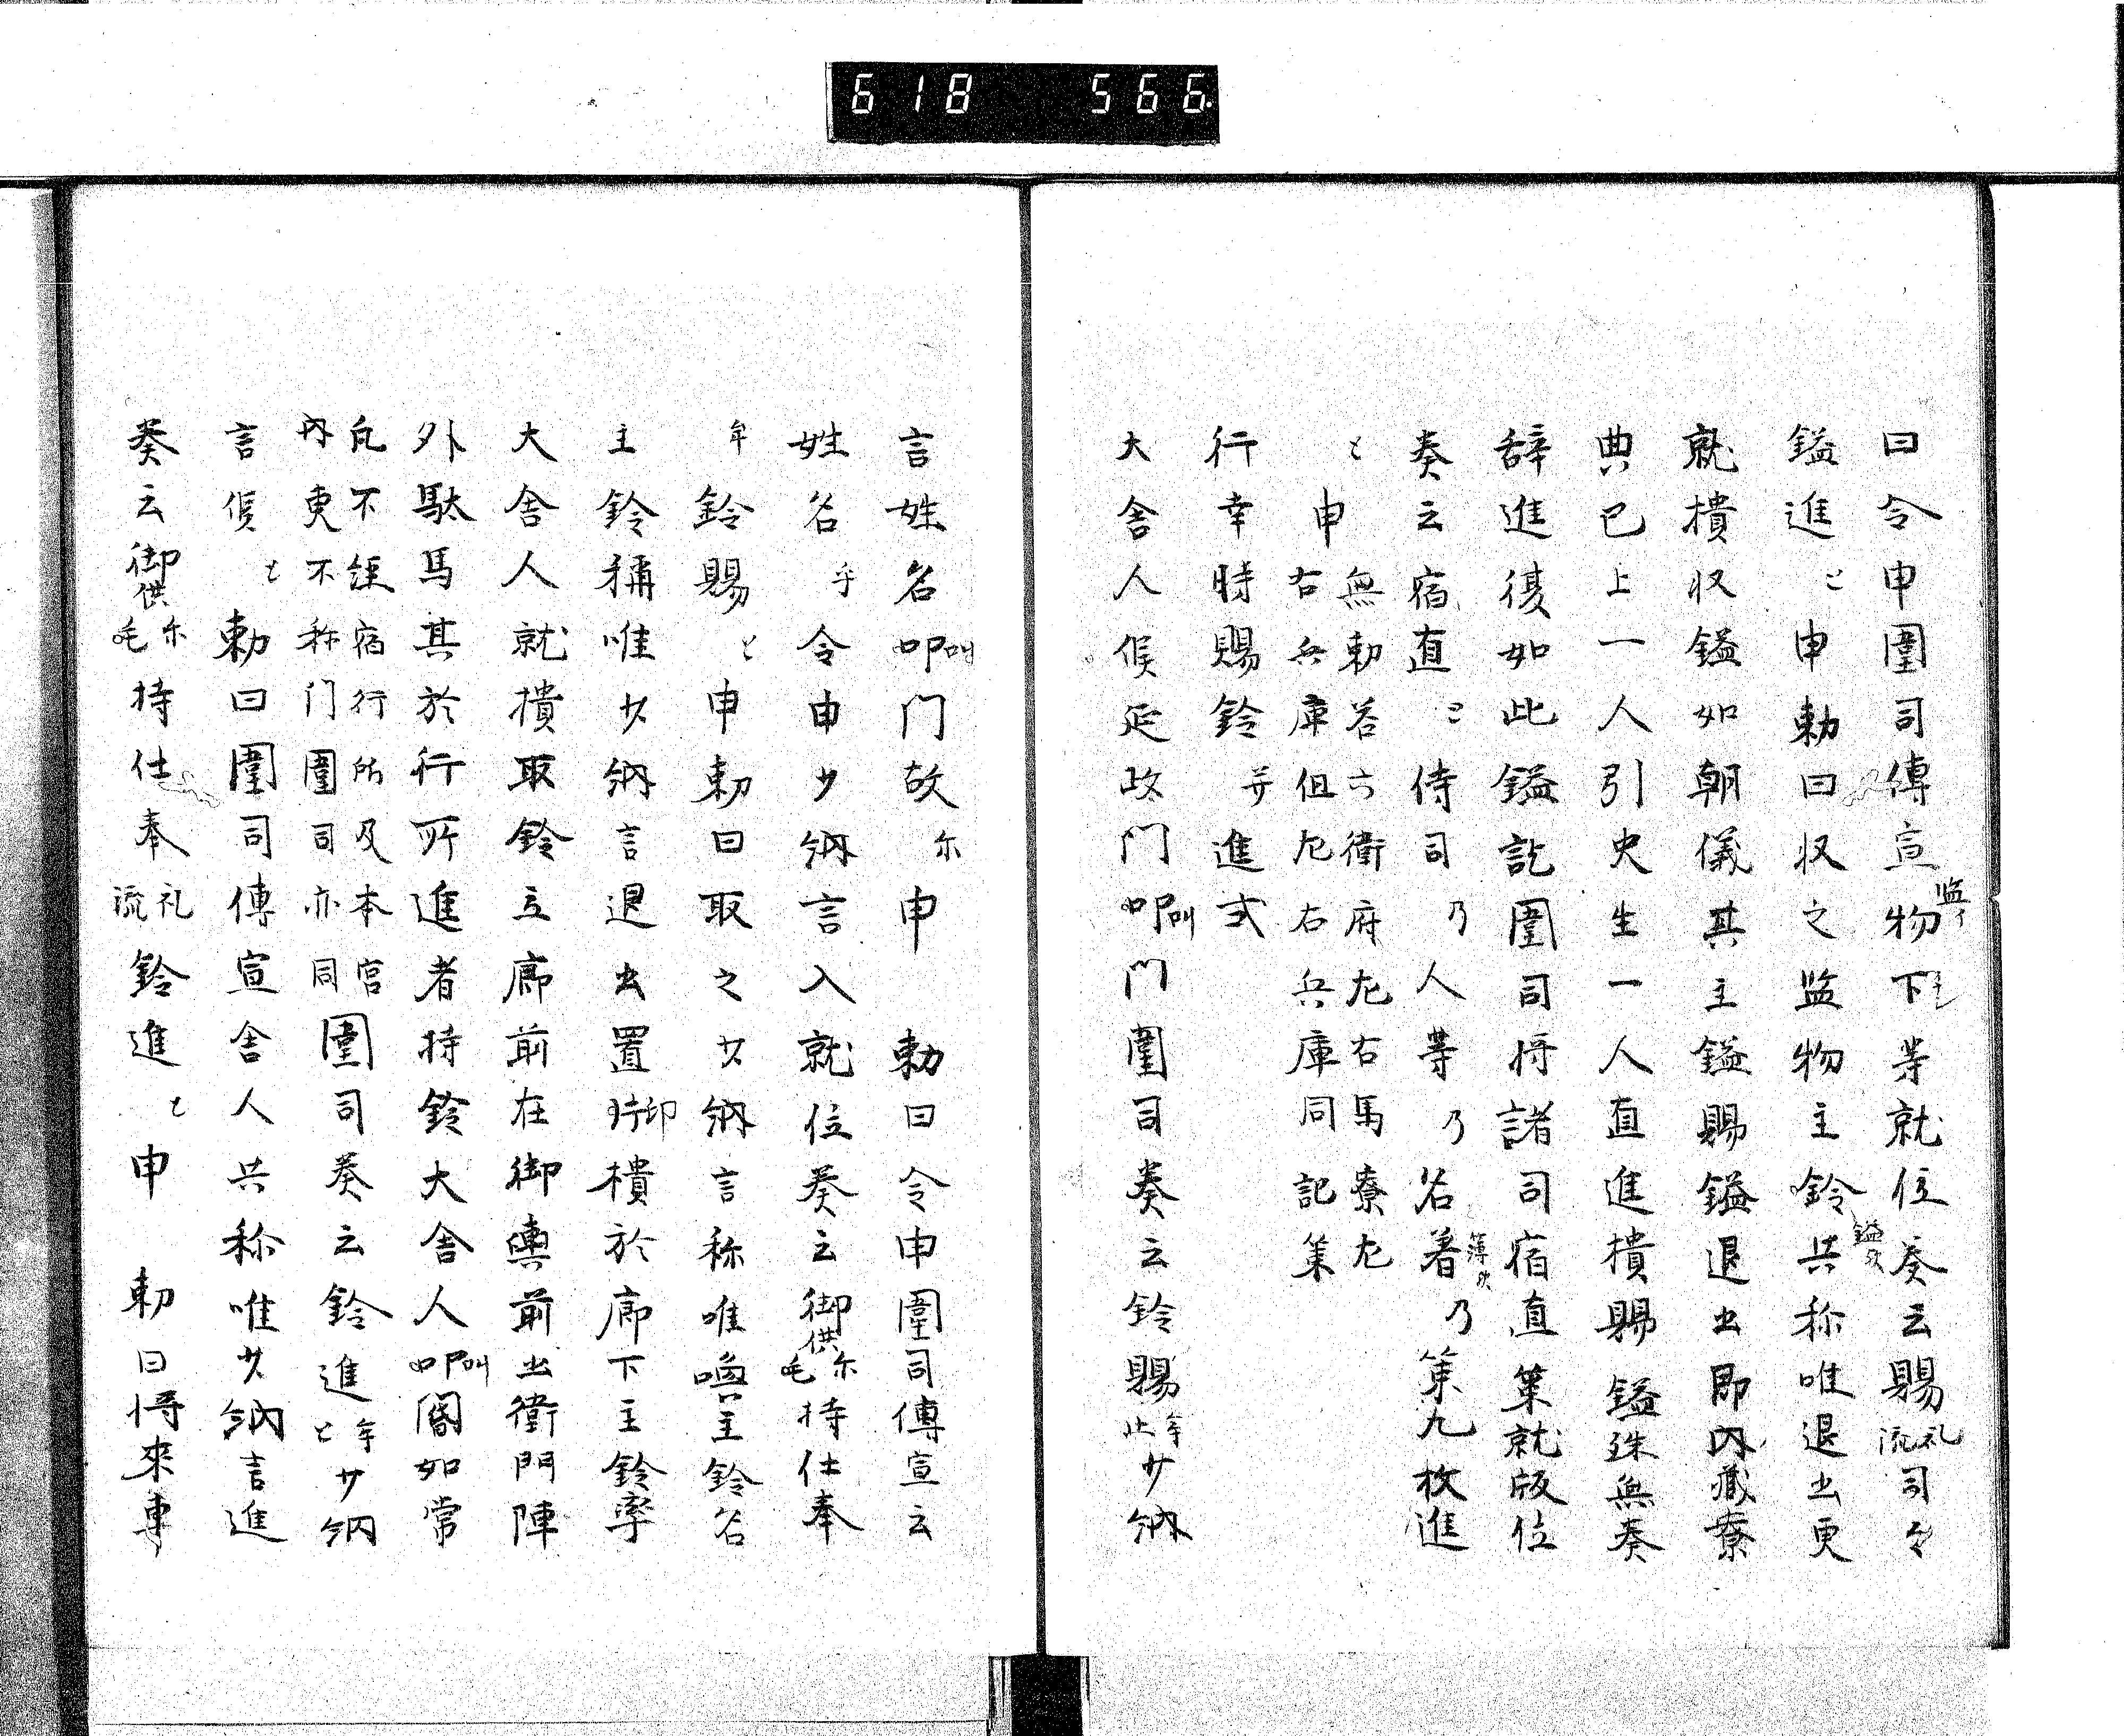 618 566.
曰令申圍司傳宣物下等就位奏云賜礼流司々
鎰進止申勅曰収之监物主鈴共称唯退出更
就樻収鎰如朝儀其主鎰賜鎰退出即内藏寮
典已上一人引史生一人直進樻賜鎰殊無奏
辞進復如此鎰訖圍司将諸司宿直簡就版位
奏云宿直止侍司乃人等乃名著乃簡九枚進
止申無勅答六衛府左右馬寮左
右兵庫但左右兵庫同記簡
行幸時賜鈴并進式
大舎人候延政門叫門門圍司奏云鈴賜牟止少納
言姓名叫门故尓申 勅曰令申圍司傳宣云
姓名乎令申少納言入就位奏云御供尓毛持仕奉
牟鈴賜止申勅曰取之少納言称唯喚主鈴名
主鈴稱唯少納言退出置印樻於廊下主鈴率
大舎人就樻取鈴立廊前在御輿前出衛門陣
外駄馬其於行所進者持鈴大舎人叫閽如常
凡不経宿行所及本宮
内更不称门圍司亦同圍司奏云鈴進牟止少納
言候止勅曰圍司傳宣舎人共称唯少納言進
奏云御供尓毛持仕奉礼流鈴進止申 勅曰将来専
监
鎰欤
簿欤